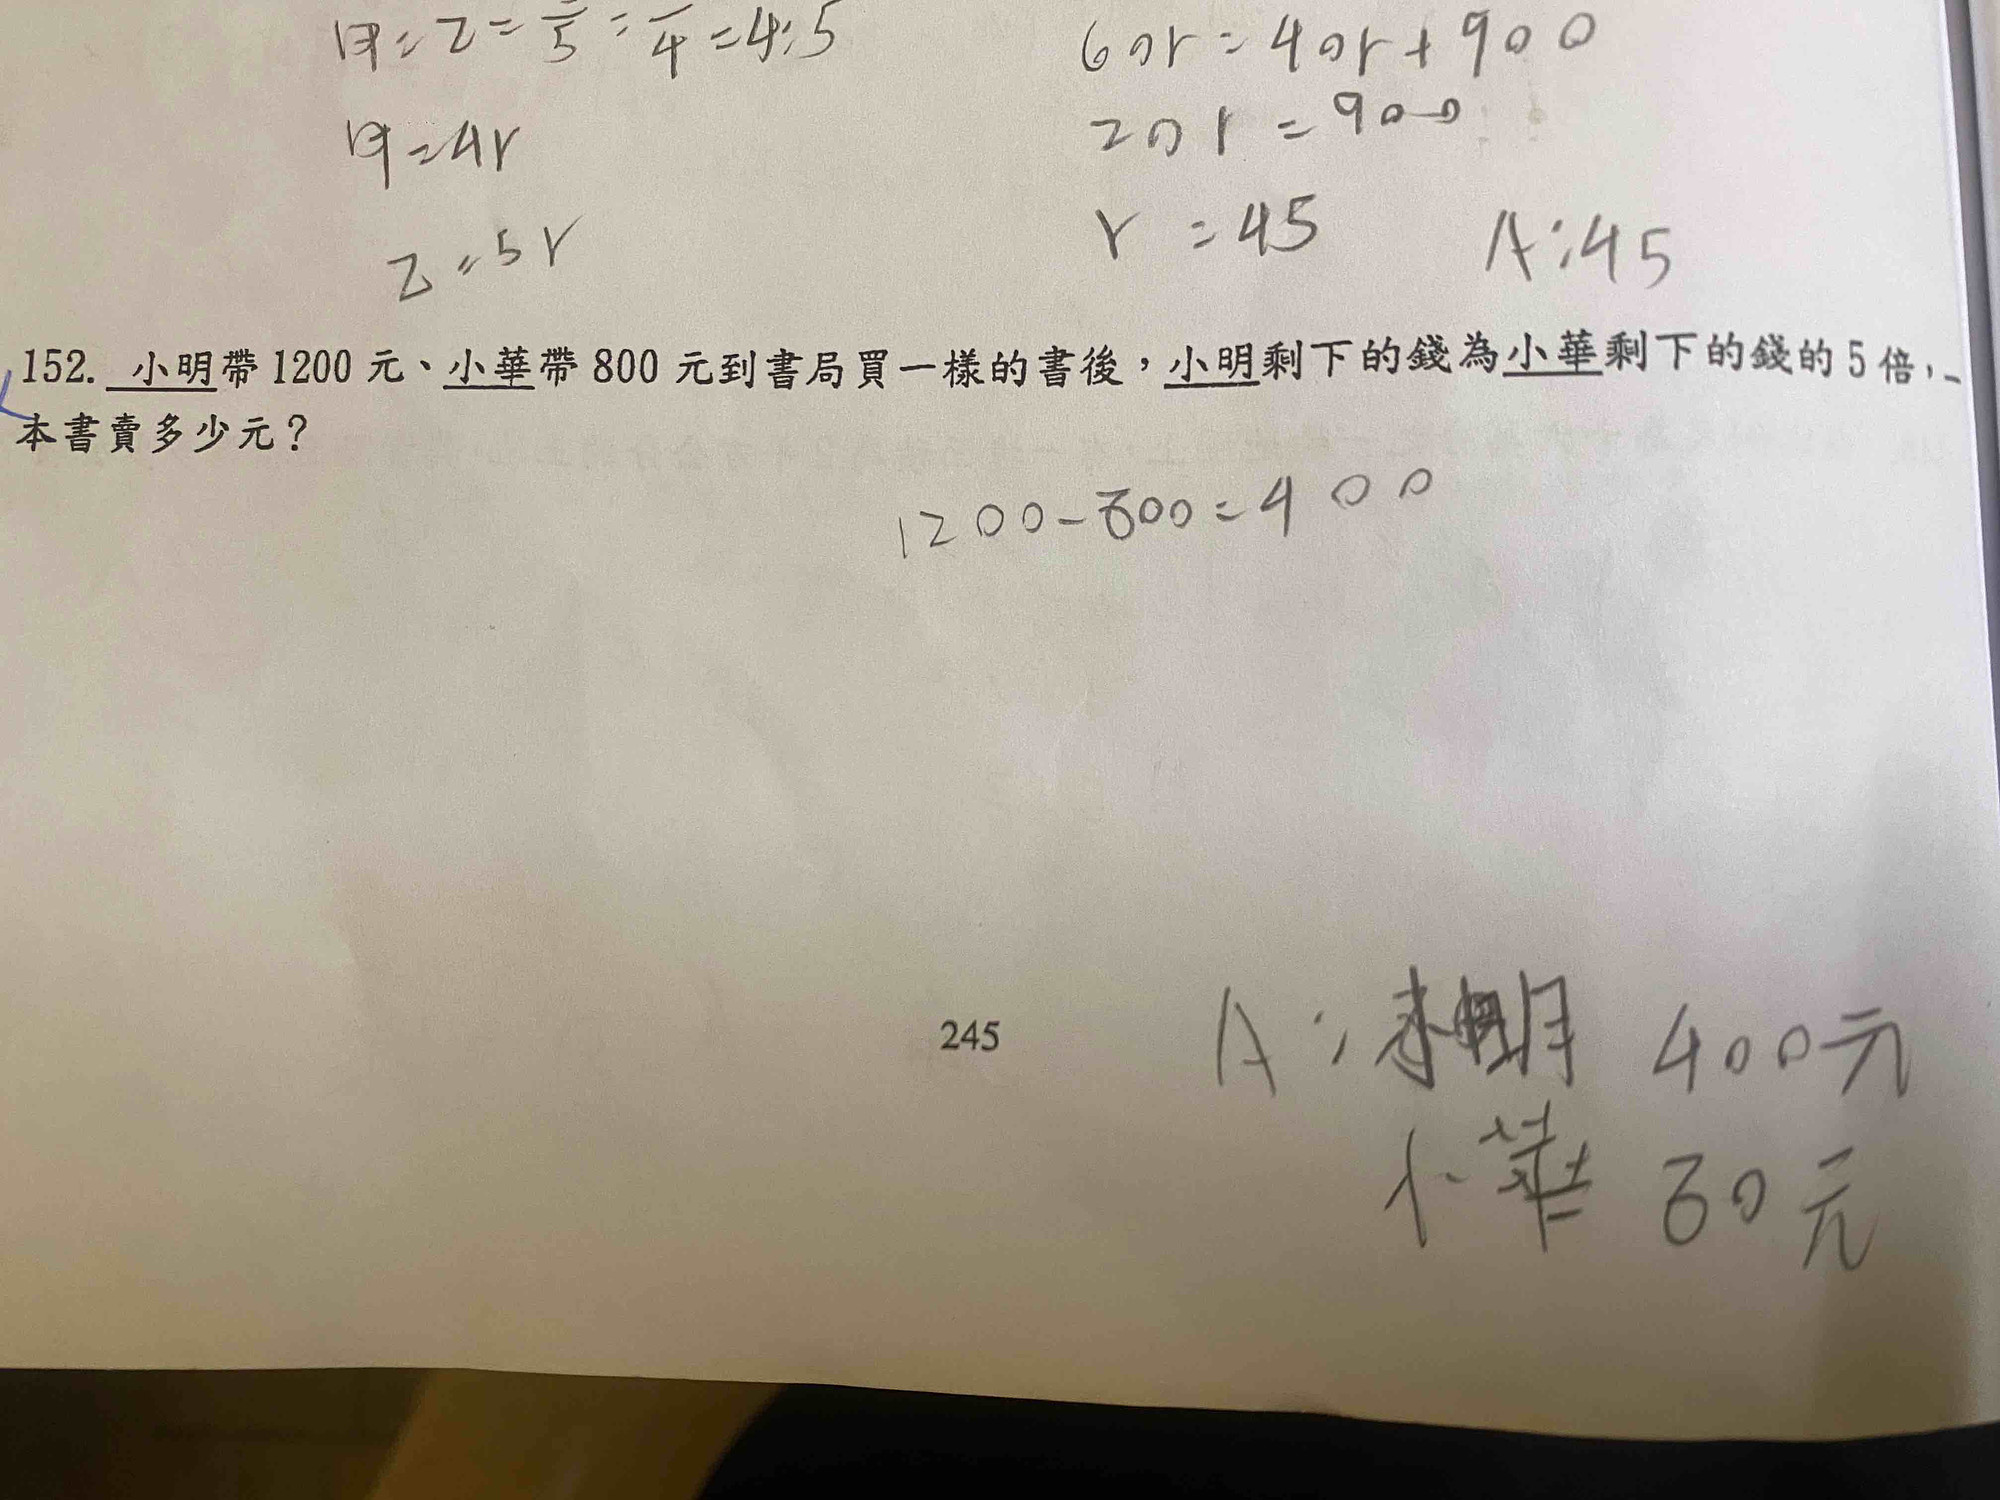 甲:乙=5=4=4:5
60r=40r+900
甲=4r
20r=900
乙=5r
r=45 A:45
152. 小明帶 1200 元、小華帶 800 元到書局買一樣的書後，小明剩下的錢為小華剩下的錢的 5 倍，一
本書賣多少元？
1200-800=400
245
A:小明 400元
小華 80元